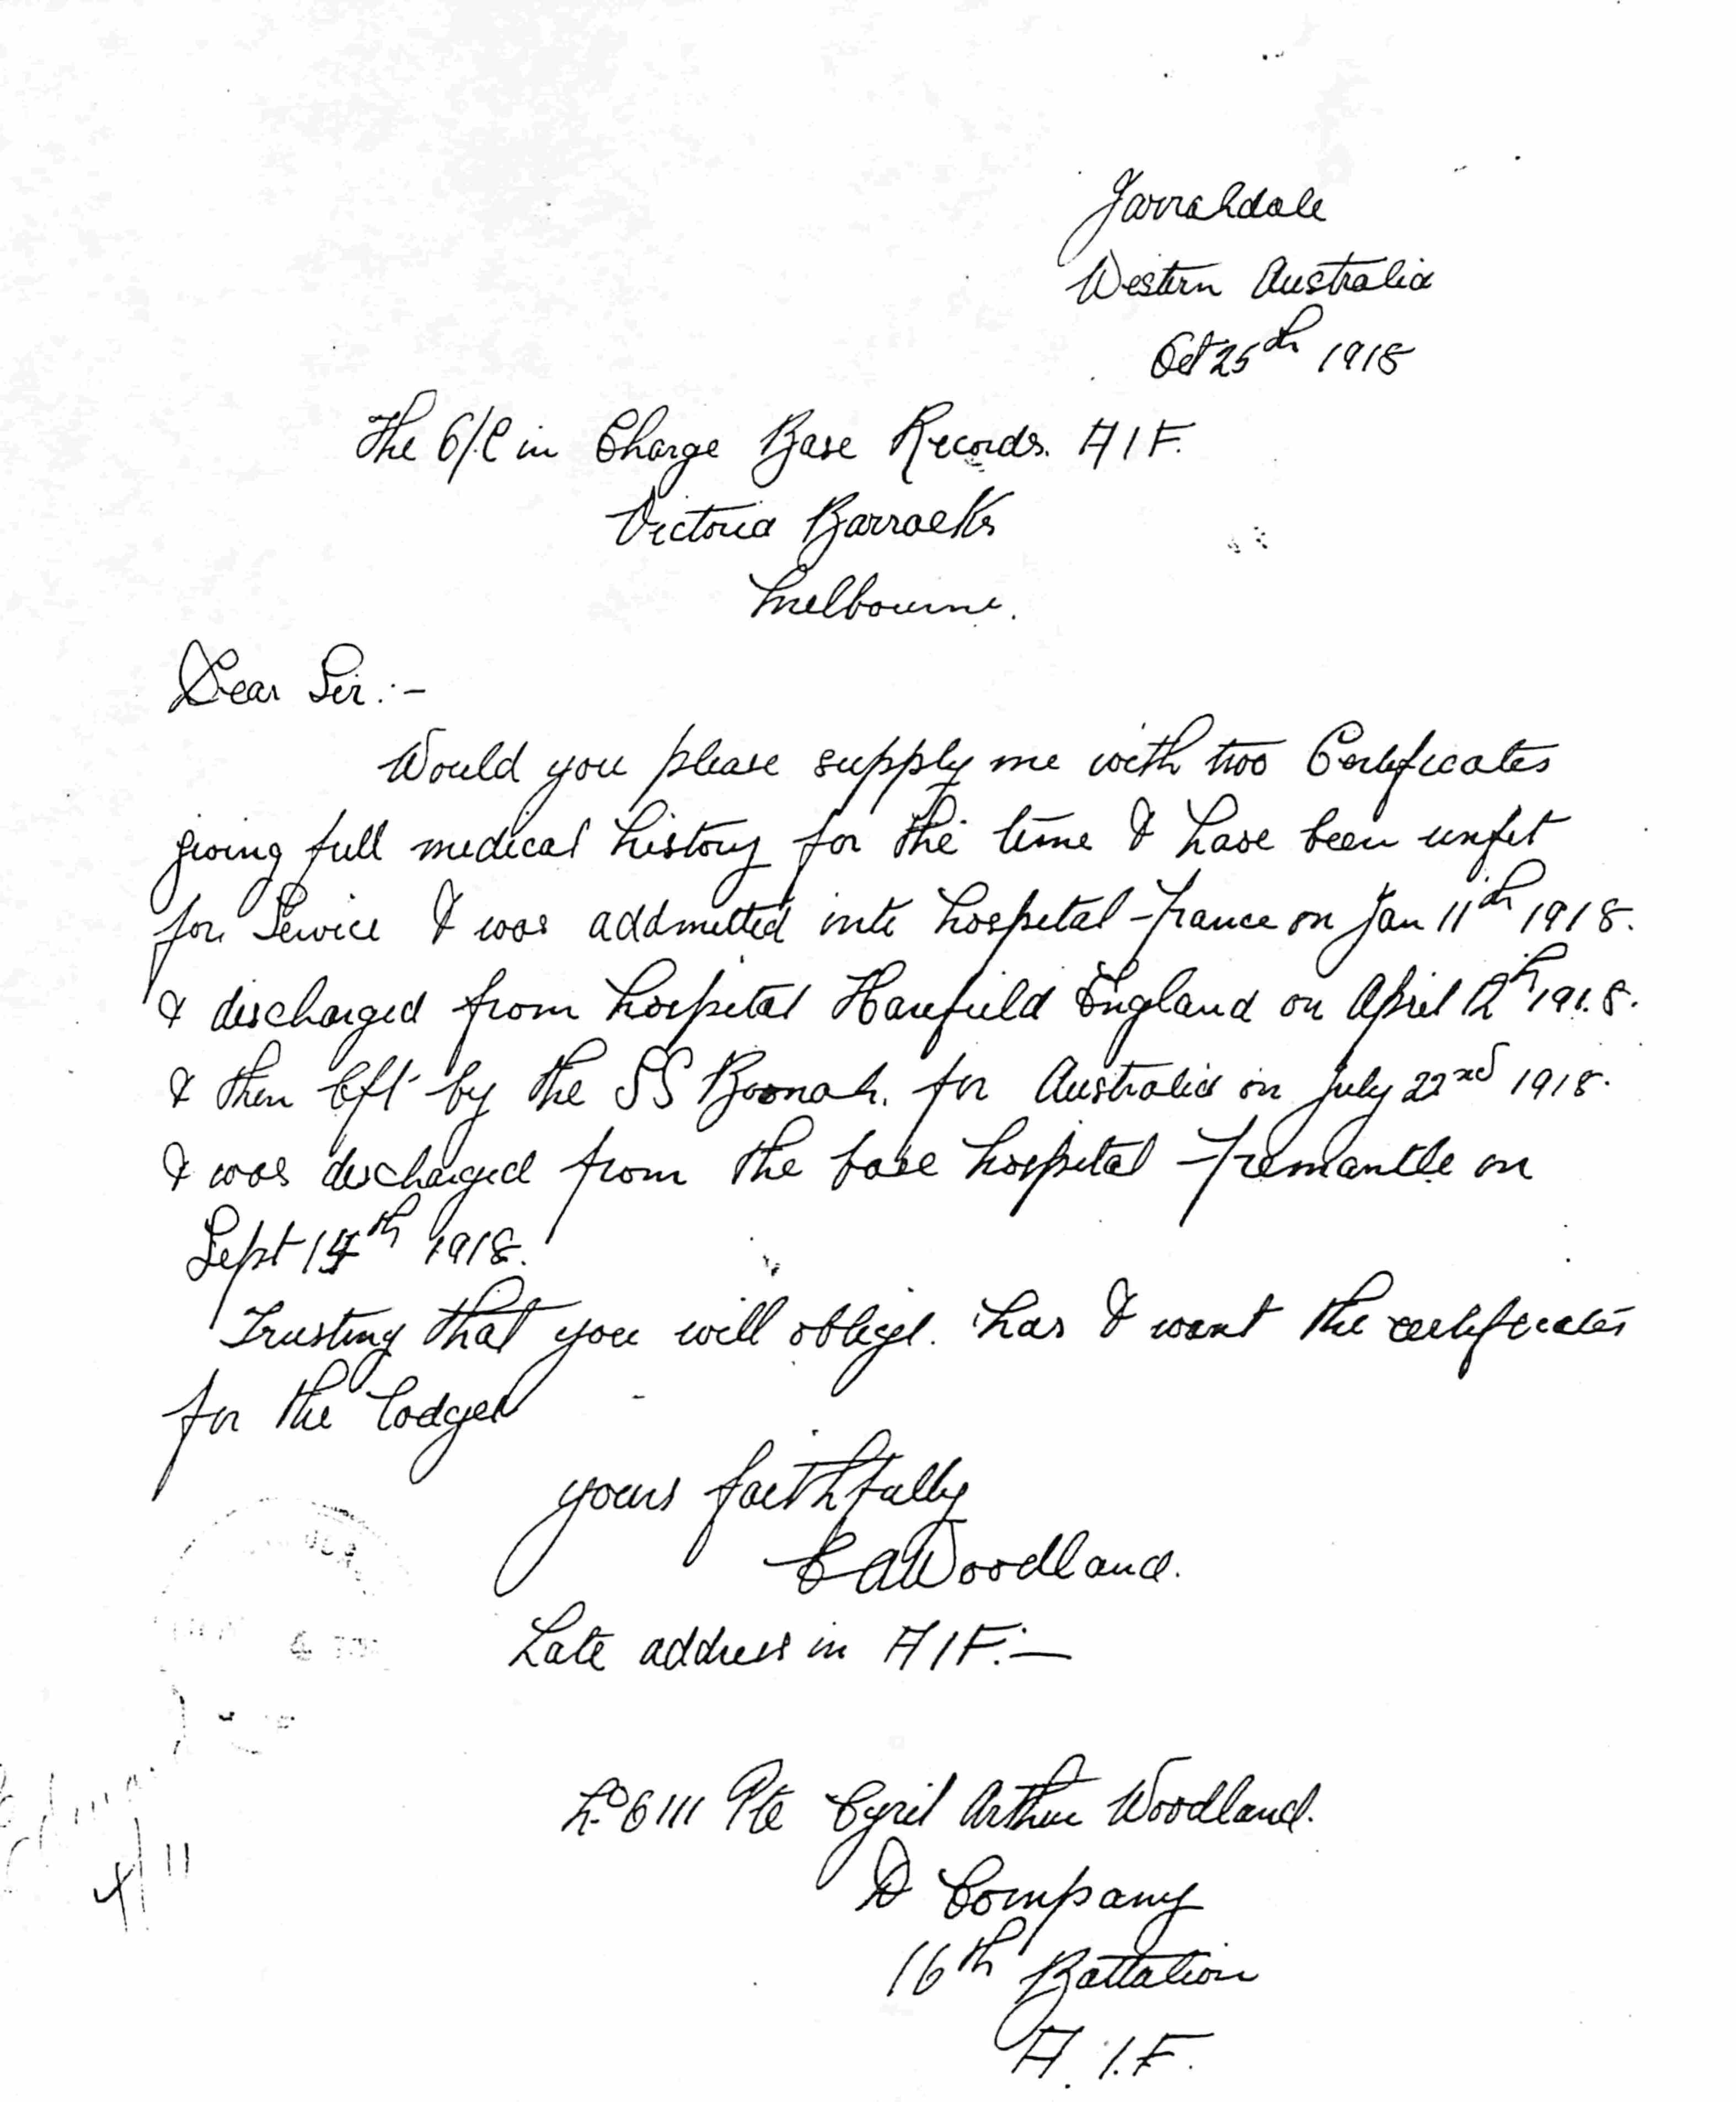 Jarrahdale
Western Australia
Oct 25th 1918
The O/C in Charge Base Records. A I F.
Victoria Barracks
Melbourne.
Dear Sir :-
Would you please supply me with two Certificates
giving full medical history for the time I have been unfit
for Service I was addmitted into hospital France on Jan 11th 1918.
& discharged from hospital Harefield England on April 12th 1918.
& then left by the SS Boonah. for Australia on July 22nd 1918.
I was discharged from the base hospital Fremantle on
Sept 14th 1918.
Trusting that you will oblige. has I want the certificates
for the Lodges
yours faithfully
C A Woodland.
Late address in A I F. :-
No 6111 Pte Cyril Arthur Woodland.
D Company
16th Battalion
A. I. F.
4/11